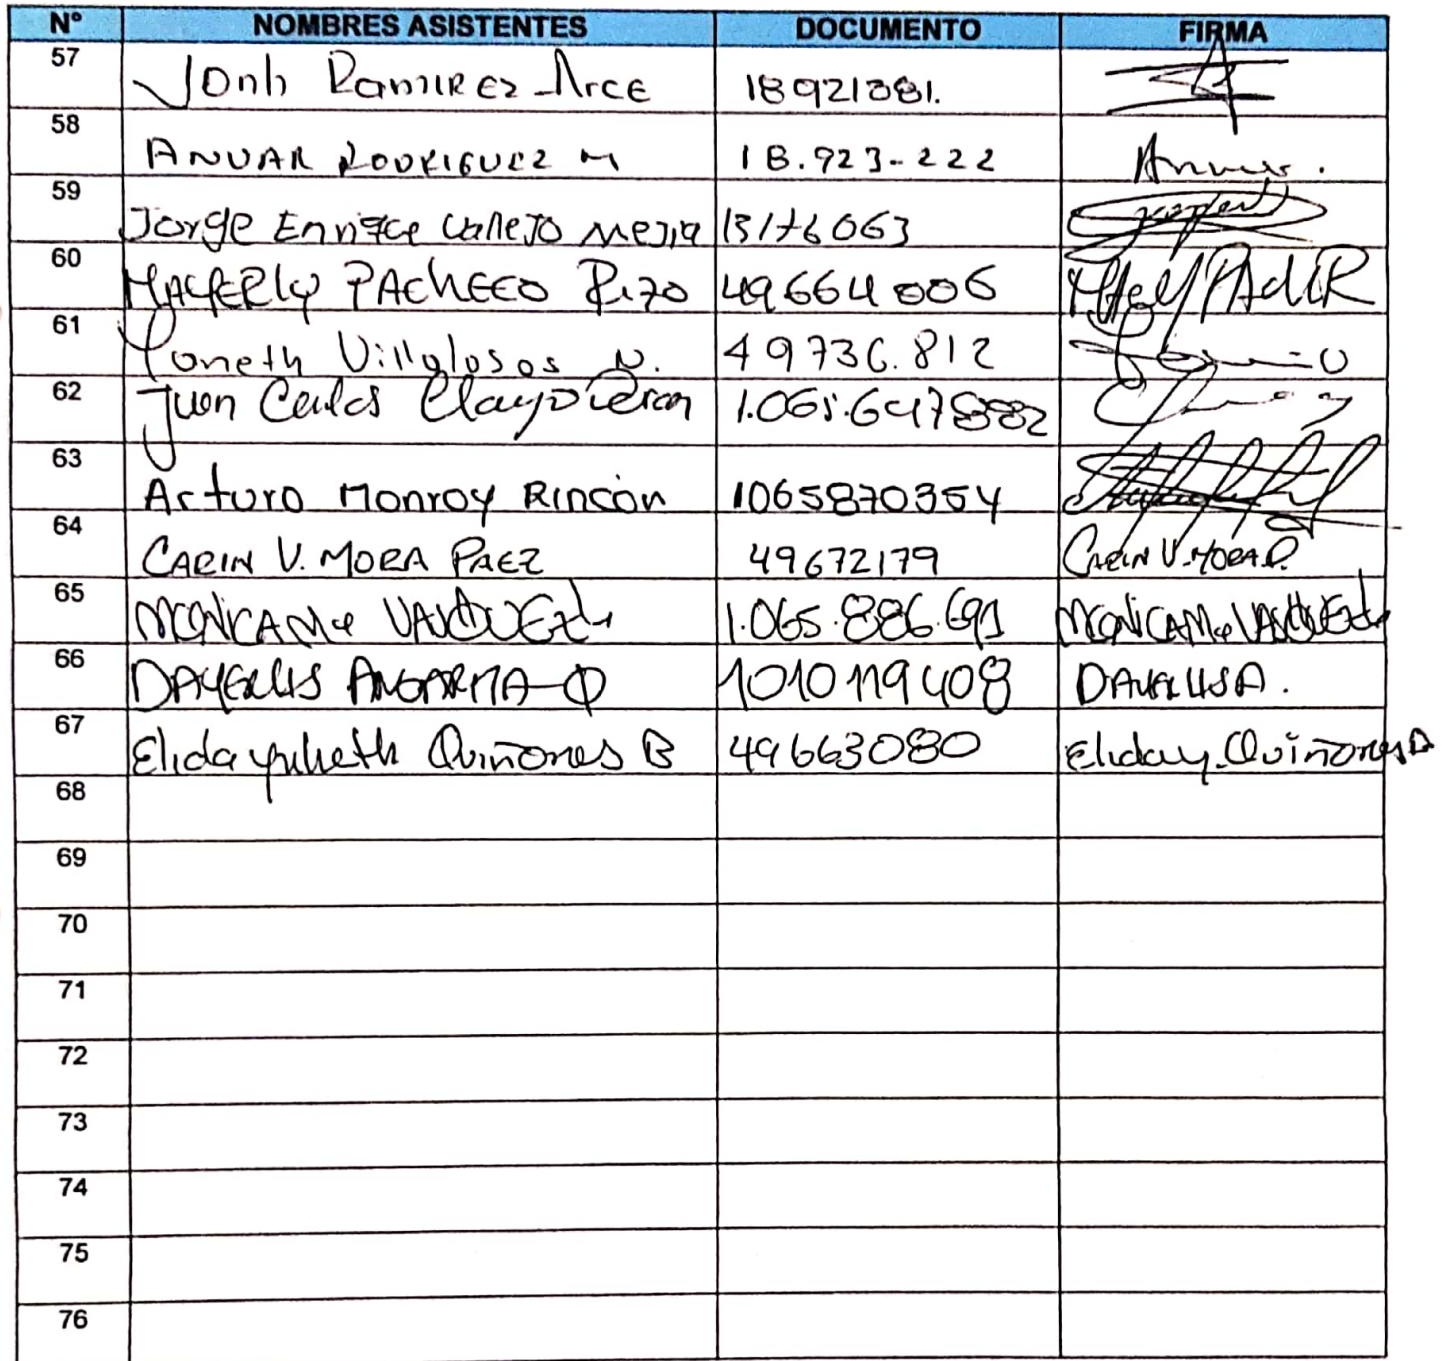 N° NOMBRES ASISTENTES DOCUMENTO FIRMA
57 Jonh Ramirez Arce 18921381.
58 ANUAR RODRIGUEZ M 18.923-222 Anuar.
59 Jorge Enrique Vallejo Mejia
60 MAYERLY PACHECO Rizo 49664006
61 Yoneth Villalobos N. 49736.812
62 Juan Carlos
63 Arturo Monroy Rincón 1065870354
64 CARIN V. MORA PAEZ 49672179 CARIN V. MORA P.
65 MONICA Ma VASQUEZ 1.065.886.691 MONICA Ma VASQUEZ
66 DAYELLIS ANGARITA 1010119408 DAYELLIS A.
67 Elida yulieth Quiñones B 49663080 Eliday Quiñones B
68
69
70
71
72
73
74
75
76